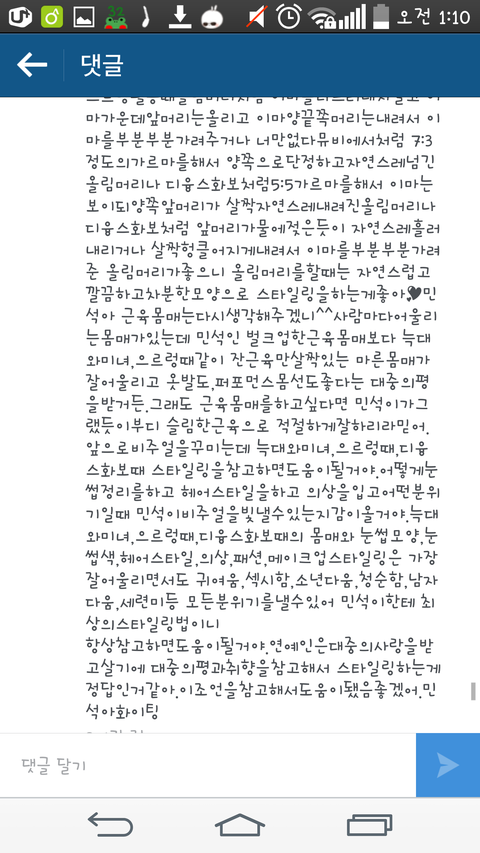 32
오전 1:10
댓글
마가운데앞머리는올리고 이마양끝쪽머리는내려서 이
마를부분부분가려주거나 너만없다뮤비에서처럼 7:3
정도의가르마를해서 양쪽으로단정하고자연스레넘긴
올림머리나 디음스화보처럼5:5가르마를해서 이마는
보이되양쪽앞머리가 살짝자연스레내려진올림머리나
디음스화보처럼 앞머리가물에젖은듯이 자연스레흘러
내리거나 살짝헝클어지게내려서 이마를부분부분가려
준 올림머리가좋으니 올림머리를할때는 자연스럽고
깔끔하고차분한모양으로 스타일링을하는게좋아💘민
석아 근육몸매는다시생각해주겠니^^사람마다어울리
는몸매가있는데 민석인 벌크업한근육몸매보다 늑대
와미녀,으르렁때같이 잔근육만살짝있는 마른몸매가
잘어울리고 옷발도,퍼포먼스몸선도좋다는 대중의평
을받거든.그래도 근육몸매를하고싶다면 민석이가그
랬듯이부디 슬림한근육으로 적절하게잘하리라믿어.
앞으로비주얼을꾸미는데 늑대와미녀,으르렁때,디음
스화보때 스타일링을참고하면도움이될거야.어떻게눈
썹정리를하고 헤어스타일을하고 의상을입고어떤분위
기일때 민석이비주얼을빛낼수있는지감이올거야.늑대
와미녀,으르렁때,디음스화보때의 몸매와 눈썹모양,눈
썹색,헤어스타일,의상,패션,메이크업스타일링은 가장
잘어울리면서도 귀여움,섹시함,소년다움,청순함,남자
다움,세련미등 모든분위기를낼수있어 민석이한테 최
상의스타일링법이니
항상참고하면도움이될거야.연예인은대중의사랑을받
고살기에 대중의평과취향을참고해서 스타일링하는게
정답인거같아.이조언을참고해서도움이됐음좋겠어.민
석아화이팅
댓글 달기